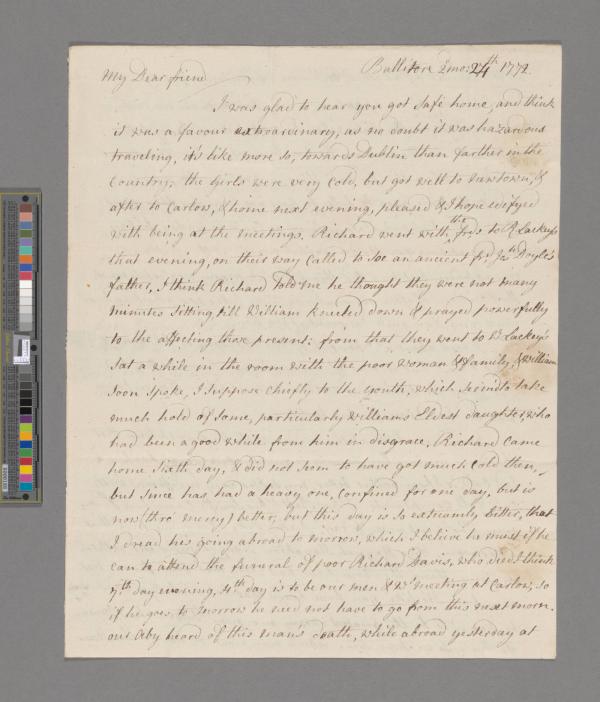 Ballitore 2mo: 24th 1772
My Dear friend
I was glad to hear you got safe home, and think
it was a favour extraordinary, as no doubt it was hazardous
traveling, it's like more so, towards Dublin than farther in the
Country; the Girls were very Cold, but got well to Newtown, &
after to Carlow, & home next evening, pleased & I hope edifyed
with being at the meetings. Richard went with the frds to R Lackeys
that evening, on their way called to See an ancient frd Jas. Doyle's
father, I think Richard Told me he thought they were not many
minutes sitting, till William kneeled down & prayed powerfully
to the affecting those present: from that they went to Lackey's
Sat a while in the room with the poor woman & family, & William
Soon Spoke, I Suppose Chiefly to the youth, which Seem'd to take
much hold of Some, particularly williams Eldest daughter, who
had been a good while from him in disgrace. Richard Came
home Sixth day, & did not Seem to have got much Cold then,
but Since has had a heavy one, Confined for one day, but is
now (thro' mercy) better, but this day is So extreamly bitter, that
I dread his going abroad to morrow, which I believe he must if he
Can to attend the funeral of poor Richard Davis, who died I think
7th day evening, 4th day is to be our men & Ws meeting at Carlow, so
if he goes, to morrow he need not have to go from this next morn.
our Aby heard of this man's death, while abroad yesterday at